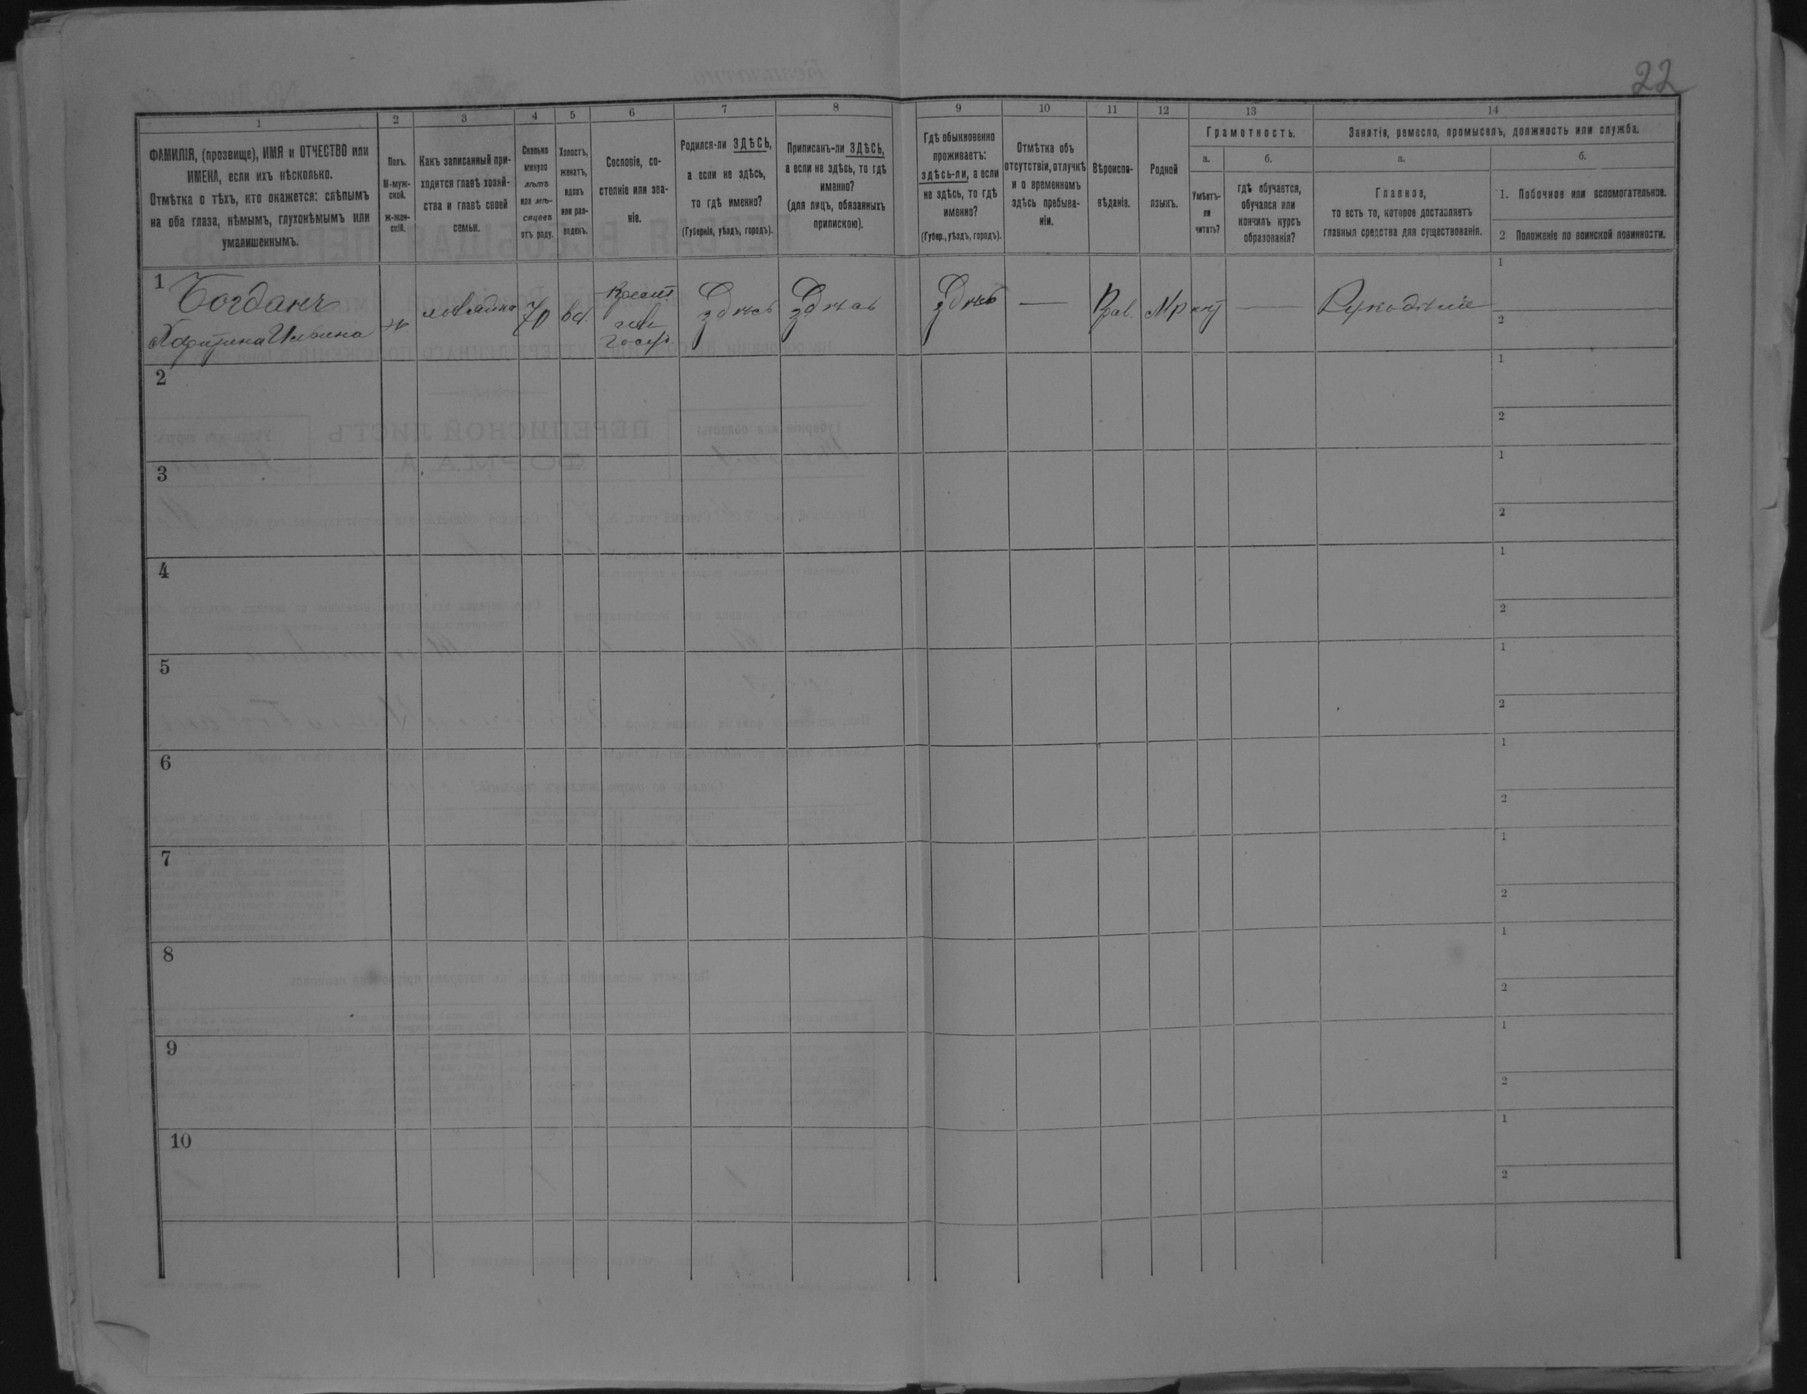 22
1 2 3 4 5 6 7 8 9 10 11 12 13 14
ФАМИЛІЯ, (прозвище), ИМЯ и ОТЧЕСТВО или
ИМЕНА, если ихъ нѣсколько.
Отмѣтка о тѣхъ, кто окажется: слѣпымъ
на оба глаза, нѣмымъ, глухонѣмымъ или
умалишеннымъ.
Полъ.
М-муж-
ской.
ж-жен-
скій.
Какъ записанный при-
ходится главѣ хозяй-
ства и главѣ своей
семьи.
Сколько
минуло
лѣтъ
или мѣ-
сяцевъ
отъ роду.
Холостъ,
женатъ,
вдовъ
или раз-
веденъ.
Сословіе, со-
стояніе или зва-
ніе.
Родился-ли ЗДѢСЬ,
а если не здѣсь,
то гдѣ именно?
(Губернія, уѣздъ, городъ).
Приписанъ-ли ЗДѢСЬ,
а если не здѣсь, то гдѣ
именно?
(для лицъ, обязанныхъ
припискою).
Гдѣ обыкновенно
проживаетъ:
здѣсь-ли, а если
не здѣсь, то гдѣ
именно?
(Губер., уѣздъ, городъ).
Отмѣтка объ
отсутствіи, отлучкѣ
и о временномъ
здѣсь пребыва-
ніи.
Вѣроиспо-
вѣданіе.
Родной
языкъ.
Грамотность.
а.
Умѣетъ-
ли
читать?
б.
гдѣ обучается,
обучался или
кончилъ курсъ
образованія?
Занятія, ремесло, промыселъ, должность или служба.
а.
Главное,
то есть то, которое доставляетъ
главныя средства для существованія.
б.
1. Побочное или вспомогательное.
2 Положеніе по воинской повинности.
1 Богданъ
Ильина
70
Здѣсь Здѣсь Здѣсь — Прав. — Рукодѣліе
1
2
2
1
2
3
1
2
4
1
2
5
1
2
6
1
2
7
1
2
8
1
2
9
1
2
10
1
2